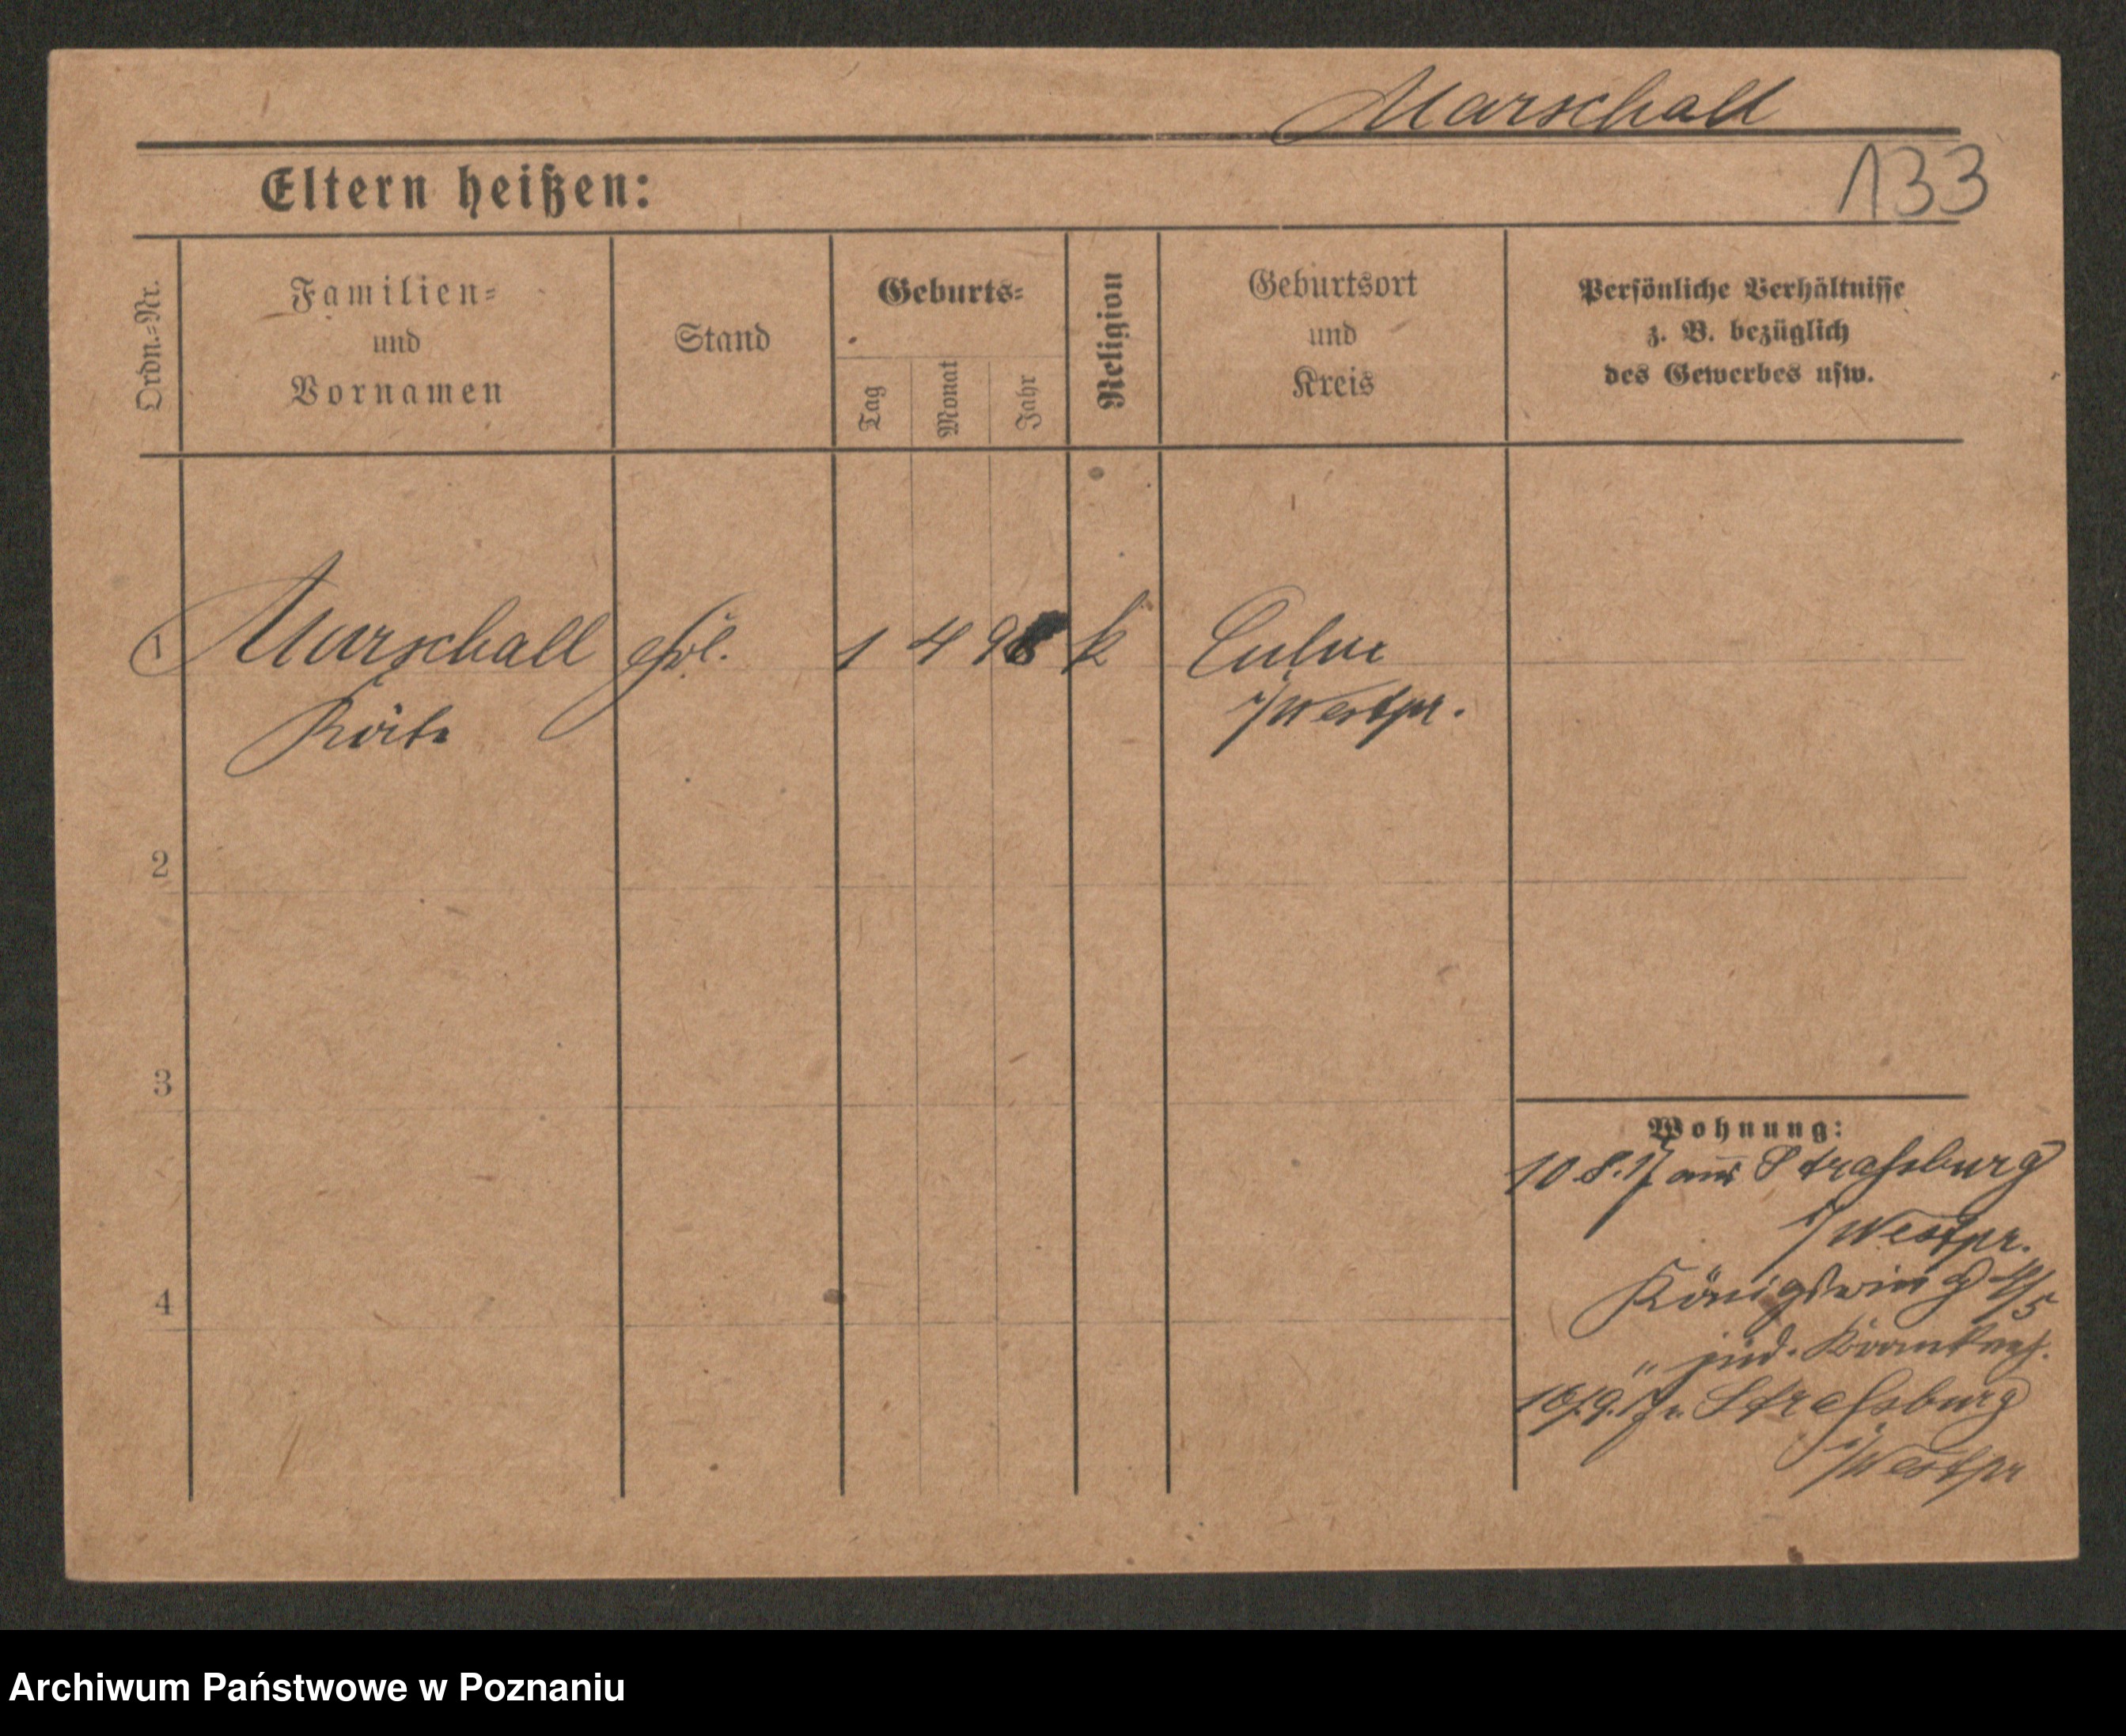 Marschall
133
Eltern heißen:
Ordn.-Nr.
Familien-
und
Vornamen
Stand
Geburts-
Tag
Monat
Jahr
Religion
Geburtsort
und
Kreis
Persönliche Verhältnisse
z. B. bezüglich
des Gewerbes usw.
1 Marschall 1 4 98 k Culm
Käte i/Westpr.
2
3
4
Wohnung:
10.8.17 aus Strassburg
i/Westpr.
Königsring
" jüd. Krankenh.
Strassburg
i/Westpr
Archiwum Państwowe w Poznaniu